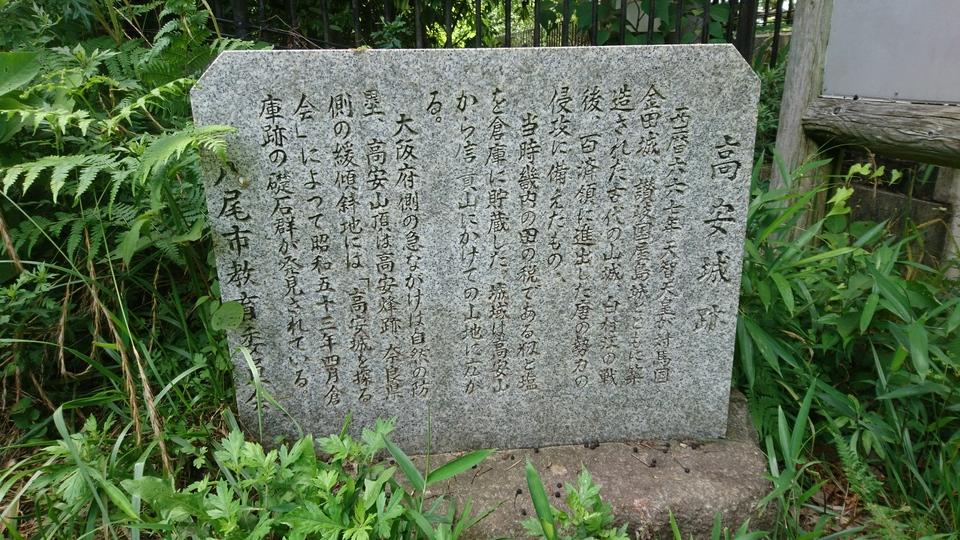 高安城跡
西暦六六七年 天智天皇が対馬国
金田城、讃岐国屋島城とともに築
造された古代の山城 白村江の戦
後、百済領に進出した唐の勢力の
侵攻に備えたもの。
当時畿内の田の税である籾と塩
を倉庫に貯蔵した。城域は高安山
から信貴山にかけての山地に左か
る。
大阪府側の急ながけは自然の防
塁、高安山頂は高安烽跡 奈良県
側の緩傾斜地には「高安城を探る
会」によって昭和五十三年四月倉
庫跡の礎石群が発見されている。
八尾市教育委員会